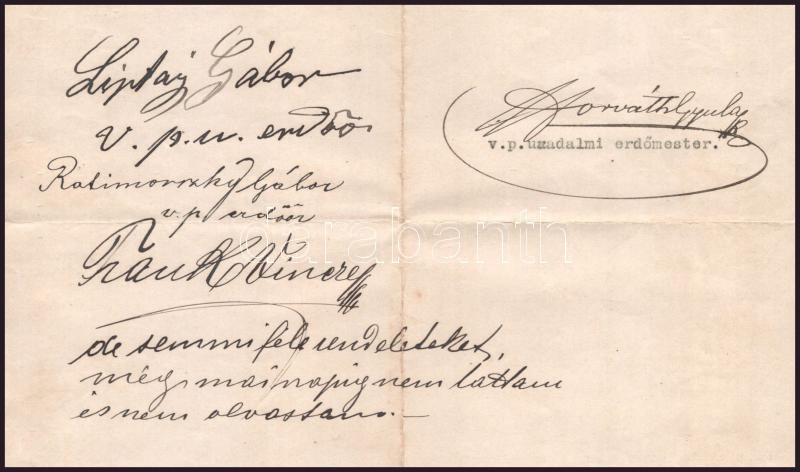 Liptay Gábor
v. p. u. erdőőr
Ratimorszky Gábor
v.p. erdőőr
Frank Vincze
de semmiféle rendeleteket,
még mai napig nem láttam
és nem olvastam.—
Horváth Gyula
v.p.uradalmi erdőmester.
darabanth